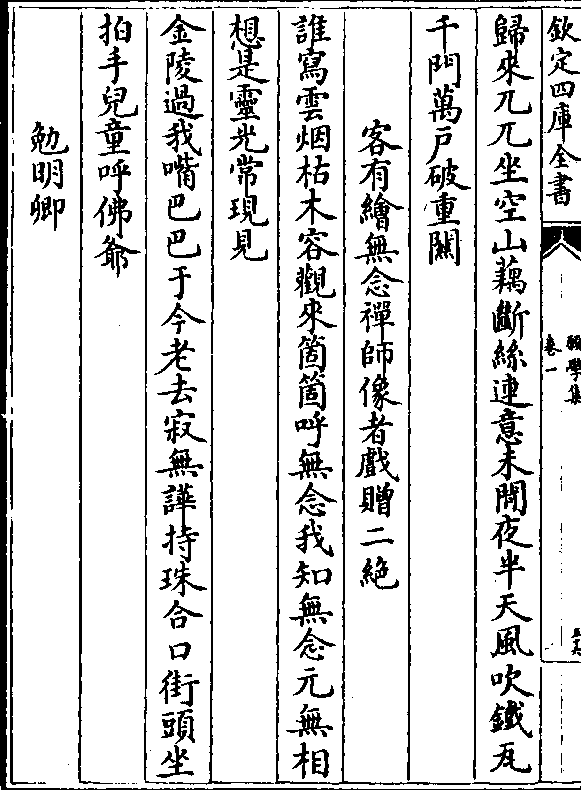 欽定四庫全書
卷一
歸來兀兀坐空山藕斷絲連意未閒夜半天風吹鐵瓦
千門萬戶破重關
客有繪無念禪師像者戲贈二絶
誰寫雲烟枯木容觀來箇箇呼無念我知無念元無相
想是靈光常現見
金陵過我嘴巴巴于今老去寂無譁持珠合口街頭坐
拍手兒童呼佛爺
勉明卿